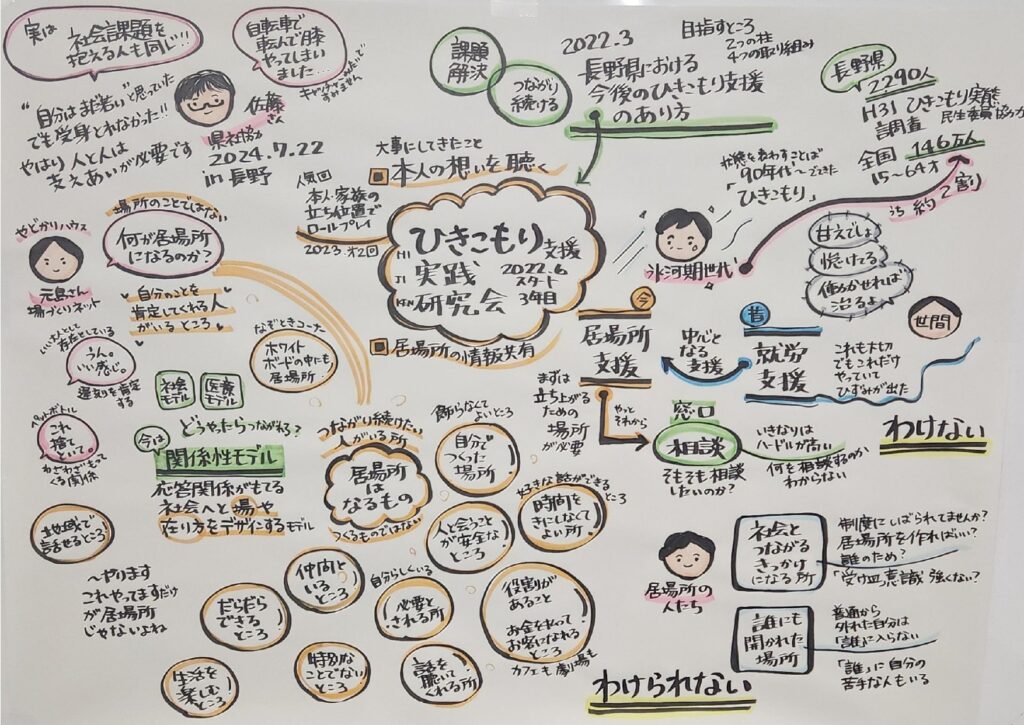 実は
社会課題を
抱える人も同じ!!
自転車で
転んで膝
やってしまい
ました…
"自分はまだ若い"と思っていた
でも受身とれなかった!!
やはり 人と人は
支えあいが必要です
佐藤
さん
県社協
2024.7.22
in 長野
課題
解決
つながり
続ける
2022.3
長野県における
今後のひきこもり支援
のあり方
目指すところ
2つの柱
4つの取り組み
長野県
2290人
H31 ひきこもり実態
調査
民生委員協力
全国 146万人
15〜64才
うち 約2割
大事にしてきたこと
本人の想いを聴く
人気回
本人・家族の
立ち位置で
ロールプレイ
2023.第2回
ひきこもり支援
実践
研究会
HI
JI
KEN
2022.6
スタート
3年目
居場所の情報共有
状態を表すことば
90年代〜でてきた
「ひきこもり」
氷河期世代
甘えでしょ
怠けてる
働かせれば
治るよ
世間
やどかりハウス
元島さん
場づくりネット
場所のことではない
何が居場所
になるのか?
自分のことを
肯定してくれる人
がいるところ
いい人として
存在している
うん。
いい感じ。
遅刻を肯定
する
なぞときコーナー
ホワイト
ボードの中にも
居場所
ペットボトル
これ
捨てて
いて。
わざわざもって
くる関係
社会
モデル
医療
モデル
どうやったらつながれる?
今は
関係性モデル
応答関係がもてる
社会へと場や
在り方をデザインするモデル
今
居場所
支援
中心と
なる
支援
昔
就労
支援
これも大切
でもこれだけ
やっていて
ひずみが出た
まずは
立ち上がる
ための
場所
が必要
やっと
それから
窓口
相談
そもそも相談
したいのか?
いきなりは
ハードルが高い
何を相談するのか
わからない
わけない
つながり続けたい
人がいる所
居場所
は
なるもの
つくるものではない
飾らなくて
よいところ
自分で
つくった
場所
好きな話ができる
ところ
時間を
きにしなくて
よい所
人と会うこと
が安全な
ところ
地域で
話せるところ
〜やります
これやってますだけ
が居場所
じゃないよね
仲間と
いる
ところ
自分らしくいる
必要と
される所
だらだら
できる
ところ
役割が
あること
お金を払って
お客になれる
ところ
カフェも劇場も
生活を
楽しむ
ところ
特別な
ことでない
ところ
話を
聴いて
くれる所
居場所の
人たち
社会と
つながる
きっかけ
になる所
制度にしばられてませんか?
居場所を作ればいい?
誰のため?
「受け皿意識」強くない?
誰にも
開かれた
場所
普通から
外れた自分は
「誰」に入らない
「誰」に自分の
苦手な人もいる
わけられない